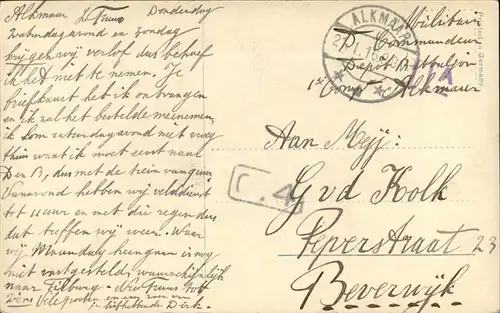 Alkmaar Donderdag
Zaterdagavond en zondag
krijgen wij verlof dus behoef
ik het niet te nemen. Je
briefkaart heb ik ontvangen
en ik zal het bestelde meenemen
ik kom zaterdagavond niet vroeg
thuis want ik moet eerst naar
Den B, dus met de trein van
Vanavond hebben wij velddienst
tot 11 uur en met die regen dus
dat treffen wij weer. Waar
wij Maandag heengaan is nog
niet vastgesteld waarschijnlijk
naar Tilburg -
Vele groeten en van
liefhebbende Dirk -
ALKMAAR
Militair
Commandeur
Depot Bataljon
1ste Comp Alkmaar
Printed in Germany
C.4
Aan Mejj:
G vd Kolk
Peperstraat 23
Beverwijk